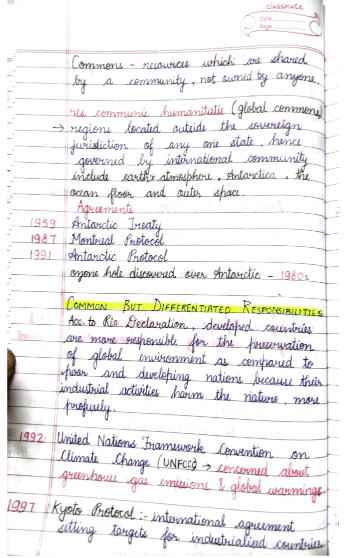 classmate
Date
Page
Commons - resources which are shared
by a community, not owned by anyone
res communis humanitatis (global commons)
→ regions located outside the sovereign
jurisdiction of any one state, hence
governed by international community
include earth's atmosphere, Antarctica, the
ocean floor and outer space.
Agreements
1959 Antarctic Treaty
1987 Montreal Protocol
1991 Antarctic Protocol
ozone hole discovered over Antarctic - 1980s
COMMON BUT DIFFERENTIATED RESPONSIBILITIES
Acc. to Rio Declaration, developed countries
are more responsible for the preservation
of global environment as compared to
poor and developing nations because their
industrial activities harm the nature, more
profusely.
1992 United Nations Framework Convention on
Climate Change (UNFCCC) → concerned about
greenhouse gas emissions & global warmings
1997 Kyoto Protocol :- international agreement
setting targets for industrialised countries